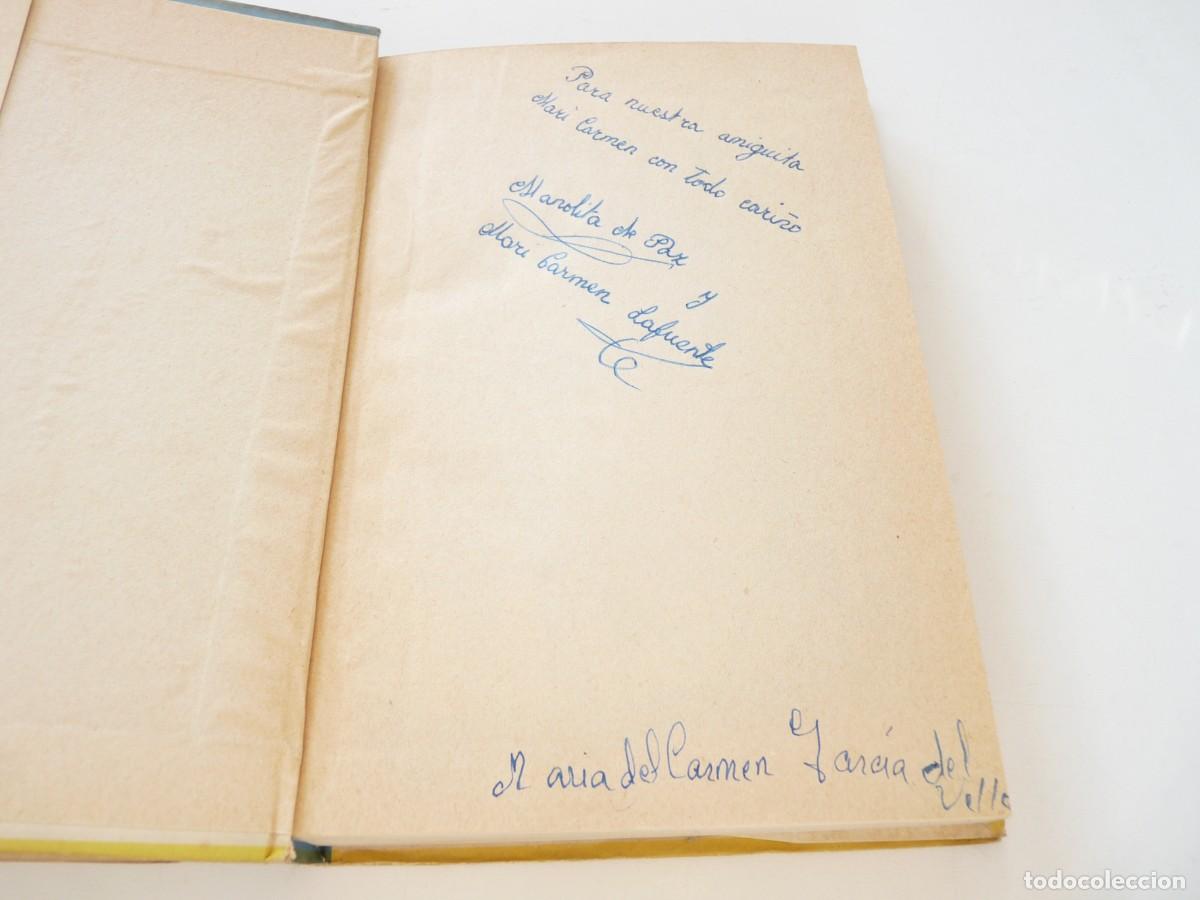 Para nuestra amiguita
Mari Carmen con todo cariño
Manolita de Paz
y
Mari Carmen Lafuente
Maria del Carmen García del
todocoleccion